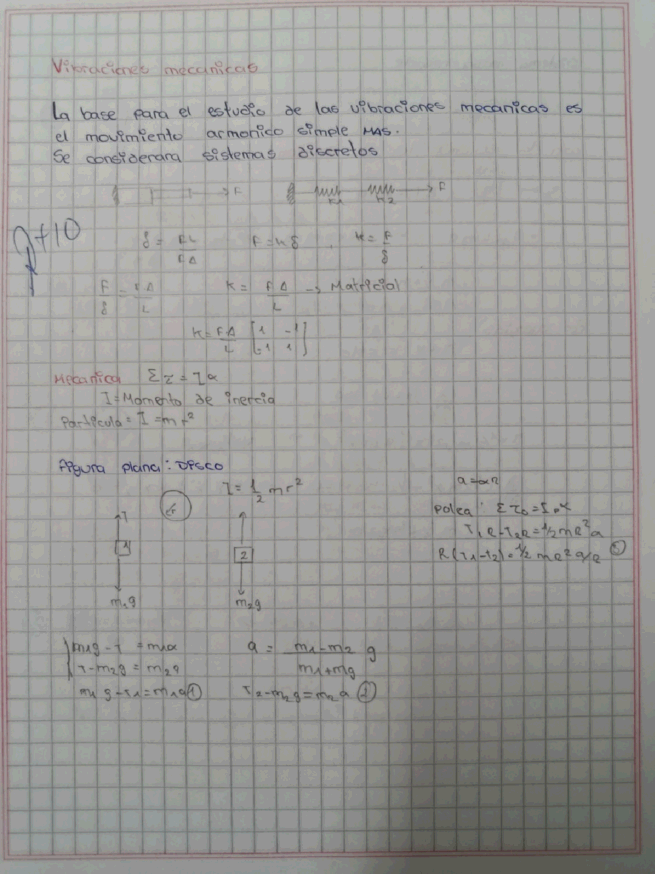 Vibraciones mecanicas
La base para el estudio de las vibraciones mecanicas es
el movimiento armonico simple MAS.
Se considerara sistemas discretos
F K1 K2 F
δ = FL/EA F = k δ K = F/δ
F/δ = EA/L K = EA/L → Matricial
K = EA/L [1 -1; -1 1]
Mecanica Στ = Iα
I = Momento de inercia
Particula = I = mr²
Figura plana: Disco
I = 1/2 mr²
a = αR
Polea: Στo = Io α
T1R - T2R = 1/2 mR² a
R(T1 - T2) = 1/2 mR² a/R
T
1 2
m1g m2g
m1g - T = m1a a = m1 - m2 / m1 + mg g
T - m2g = m2a
m1g - T1 = m1a ① T2 - m2g = m2a